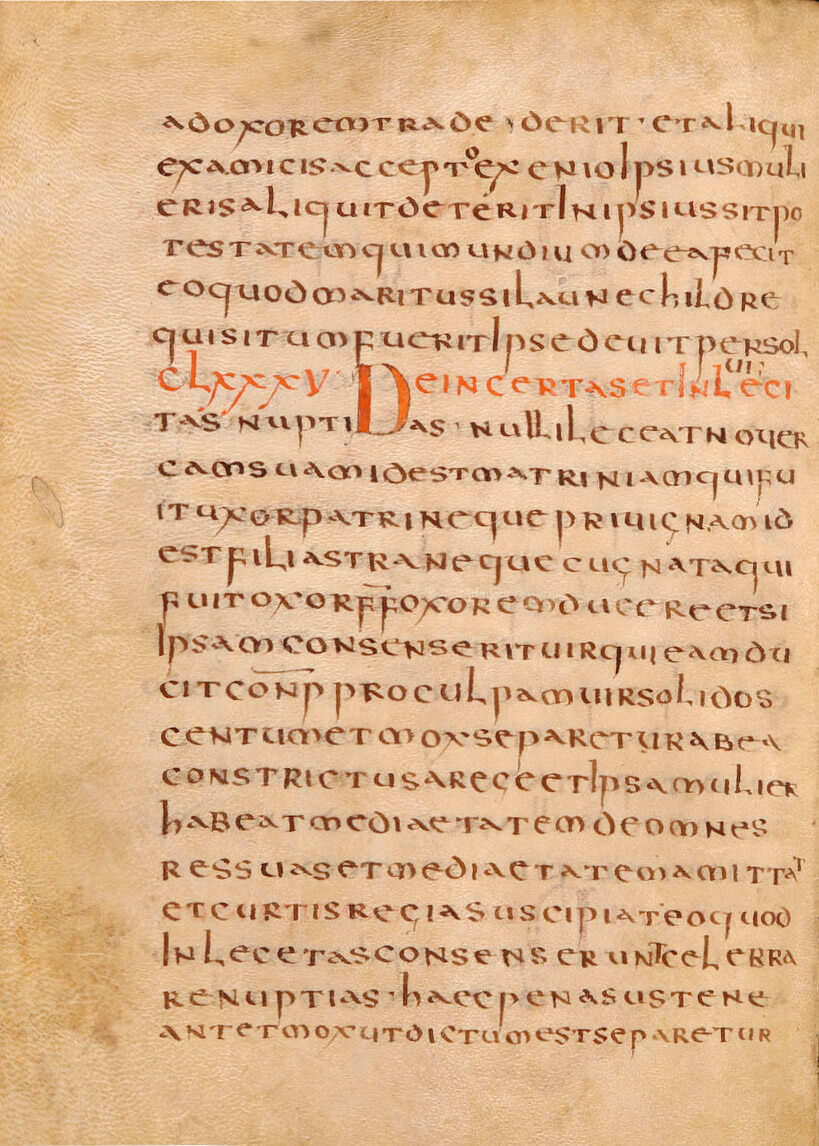 adoxoremtrade derit · etaliqui
examicisacceptoexenioipsiusmuli
erisaliquitdeteritinipsiussitpo
testatemquimundiumdeeafecit
eoquodmaritussilaunechildre
quisitumfueritipsedeuitpersol
uı:
CLXXXV· Deincertasetinleci
tas nupti as · nulliLeceatnouer
camsuamidestmatriniamquifu
ituxorpatrinequepriuignamid
estfiliastranequecugnataqui
fuitoxorf̅f̅oxoremducereetsi
ipsamconsenserituirquieamdu
citcon̅pproculpamuirsolidos
centumetmoxsepareturabea
constrictusaregeetipsamulier
habeatmediaetatemdeomnes
ressuasetmediaetatemamittat
etcurtisregiasuscipiateoquod
inlecetasconsenseruntcelebra
renuptias·haecpenasustene
antetmoxutdictumestseparetur